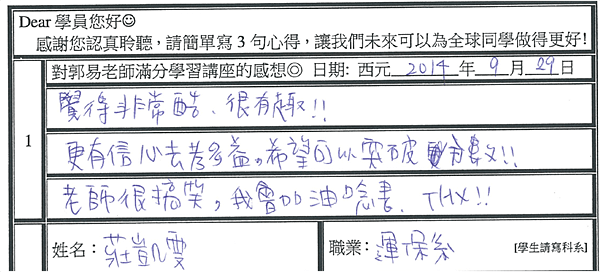 Dear 學員您好☺
感謝您認真聆聽，請簡單寫 3 句心得，讓我們未來可以為全球同學做得更好!
對郭易老師滿分學習講座的感想◎ 日期: 西元 2014 年 9 月 29 日
1
覺得非常酷、很有趣!!
更有信心去考多益。希望可以突破 分數!!
老師很搞笑，我會加油唸書、THX!!
姓名：莊凱雯
職業：運保系 [學生請寫科系]